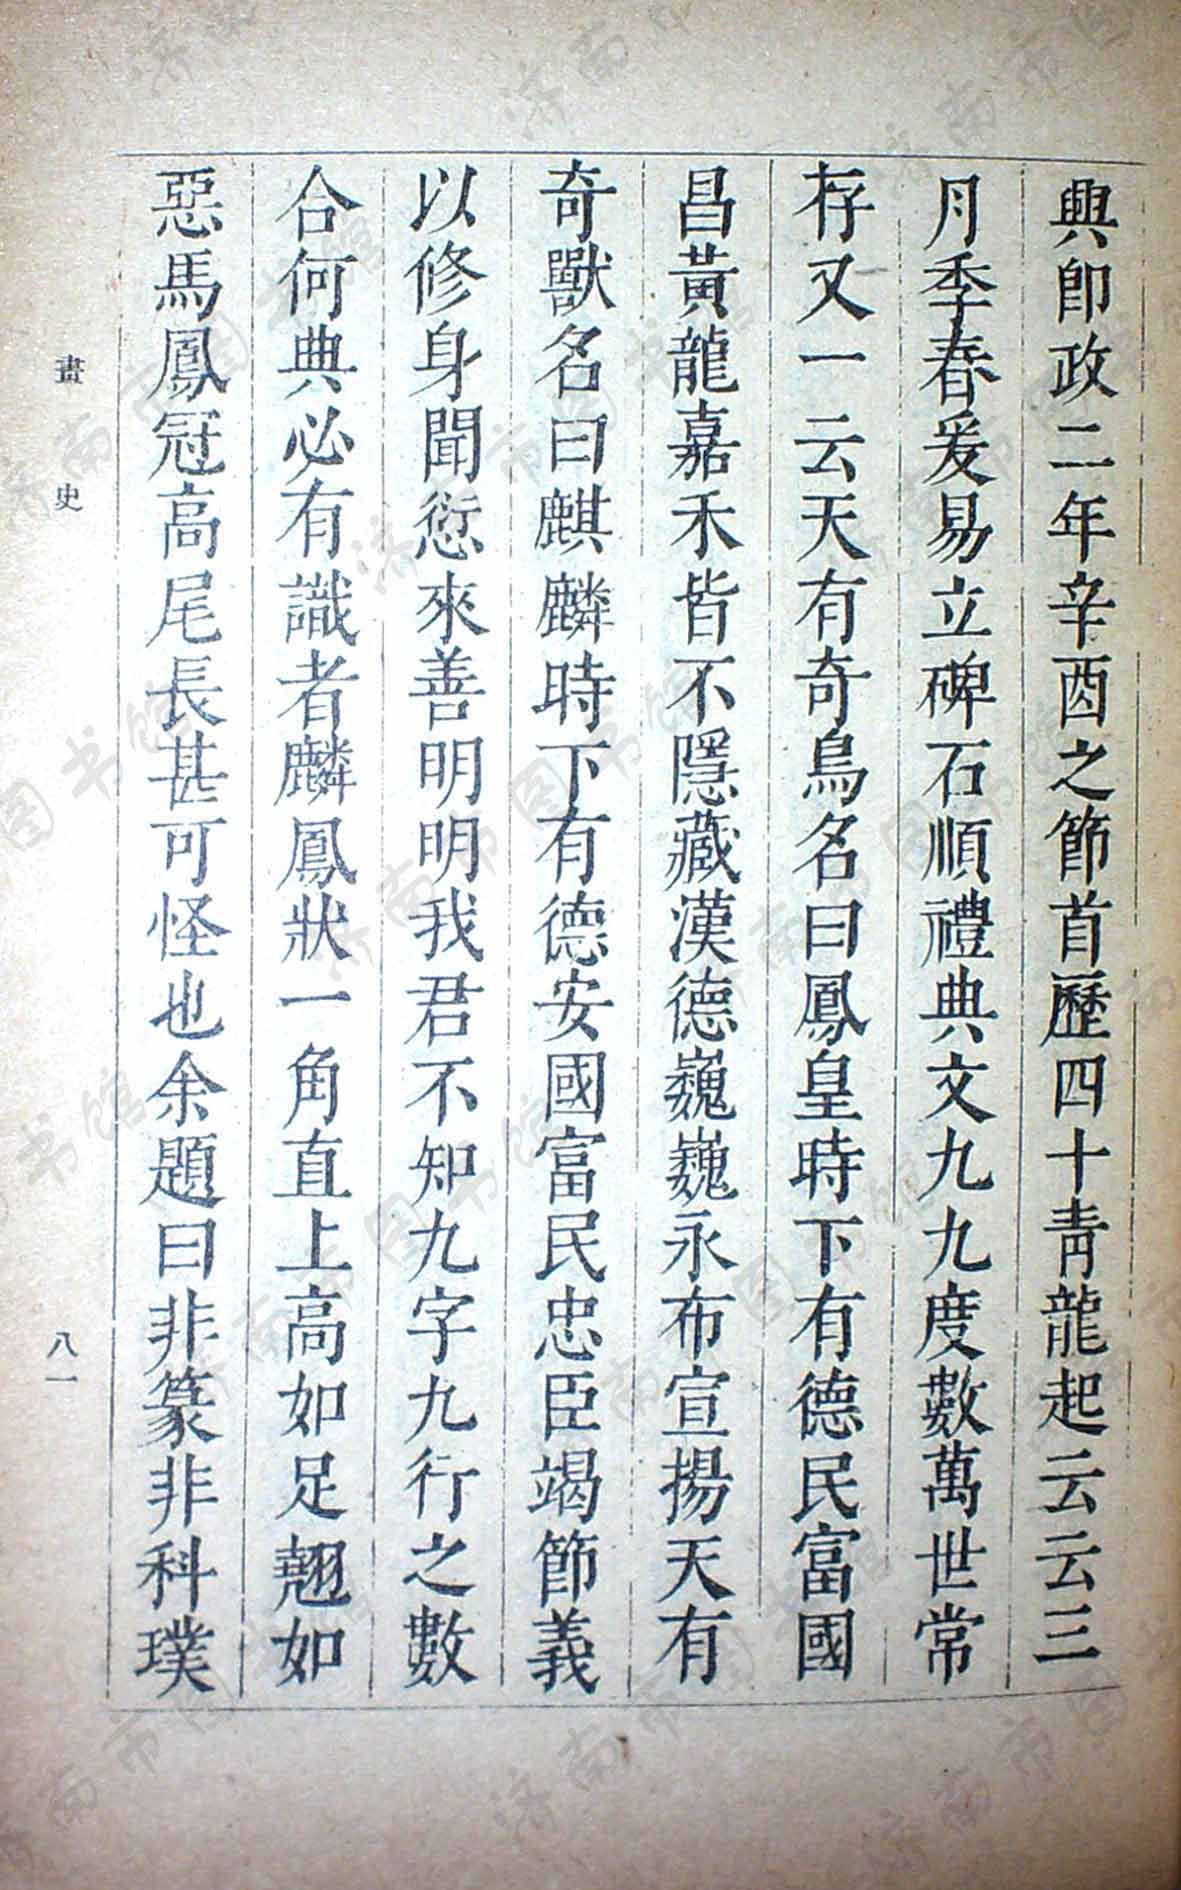 興即政二年辛酉之節首歷四十青龍起云云三
月季春爰易立碑石順禮典文九九度數萬世常
存又一云天有奇鳥名曰鳳皇時下有德民富國
昌黃龍嘉禾皆不隱藏漢德巍巍永布宣揚天有
奇獸名曰麒麟時下有德安國富民忠臣竭節義
以修身聞愆來善明明我君不知九字九行之數
合何典必有識者麟鳳狀一角直上高如足翹如
惡馬鳳冠高尾長甚可怪也余題曰非篆非科璞
畫史
八一
济南市图书馆